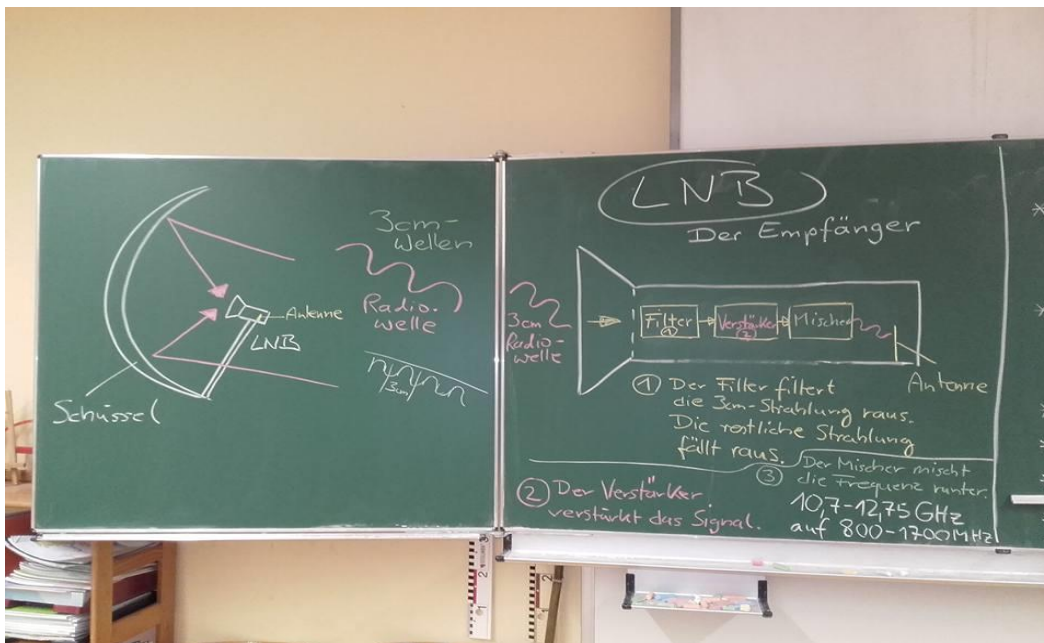 3cm-
Wellen
Radio-
welle
3cm
Antenne
LNB
Schüssel
LNB
Der Empfänger
3cm
Radio-
welle
Filter
①
Verstärker
②
Mischer
Antenne
① Der Filter filtert
die 3cm-Strahlung raus.
Die restliche Strahlung
fällt raus.
② Der Verstärker
verstärkt das Signal.
③ Der Mischer mischt
die Frequenz runter.
10,7-12,75 GHz
auf 800-1700 MHz